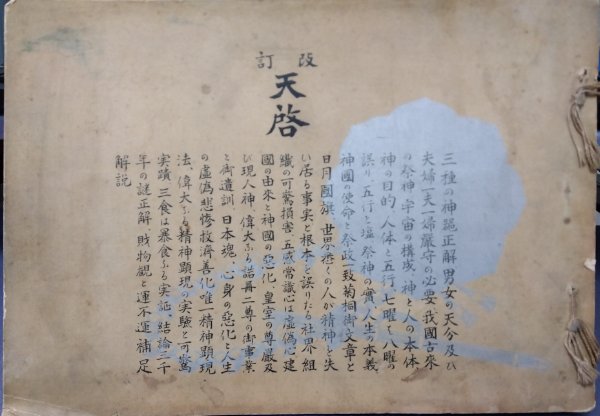 改訂
天啓
三種の神器正解男女の天分及び
夫婦一夫一婦厳守の必要、我國古來
の祭神、宇宙の構成、神と人の本体
神の目的、人体と五行、七曜と八曜の
誤り、五行と塩祭神の實、人生の本義
神國の使命と祭政一致菊桐御文章と
日月國旗、世界悉くの人が精神を失
い居る事実と根本を誤りたる社界組
織の可驚損害、五感常識心は虚偽心建
國の由來と神國の惡化、皇室の尊厳及
び現人神、偉大なる諾冊二尊の御事業
と御遺訓、日本魂、心身の惡化と人生
の虚偽悲惨救済善化唯一精神顕現
法、偉大なる精神顕現の実験と可驚
実蹟、三食は暴食なる実証、結論三千
年の謎正解、財物観と運不運、補足
解説